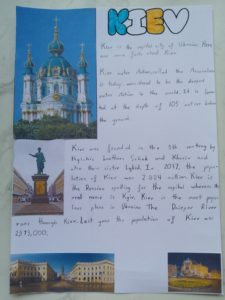 KIEV
Kiev is the capital city of Ukraine. Here
are some facts about Kiev.
Kiev metro station, called the Arsenalna
is today considered to be the deepest
metro station in the world. It is loca-
ted at the depth of 105 metres below
the ground.
Kiev was founded in the 5th century by
the brothers and Khoriv and
also their sister Lybid. In 2017, the popu-
lation of Kiev was 2.804 million. Kiev is
the Russian spelling for the capital whereas the
real name is Kyiv. Kiev is the most popu-
lous place in Ukraine. The Dnieper River
runs through Kiev. Last year the population of Kiev was
2,973,000.